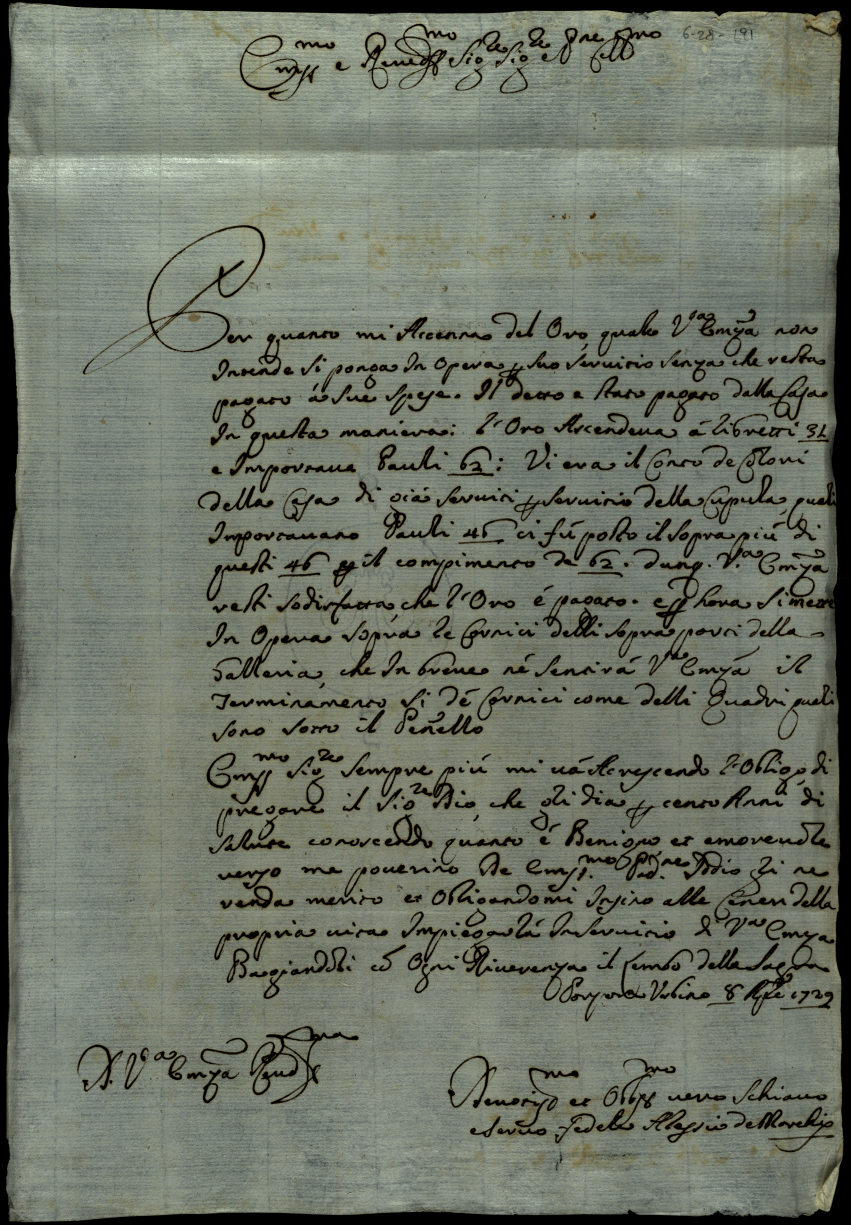 6-28-191
Em.mo e Rever.mo Sig.re Sig.re e P.ne Col.mo
Per quanto mi Accenna del Oro quale V.ra Em.za non
Intende si ponga In Opera p suo servicio senza che resta
pagato à sue spese. Il detto e stato pagato dalla Casa
In questa maniera: l'Oro Ascendeva à libretti 31
e Importava Pauli 62: Vi era il Conto de Colori
della Casa di già serviti p servicio della Cupula quali
Importavano Pauli 46 ci fù posto il sopra più di
questi 46 p il compimento de 62. dunq. V.ra Em.za
resti sodisfatta, che l'Oro é pagato. e hora si mette
In Opera sopra le Cornici delli sopra porti della
Galleria, che In breve né sentirà V.ra Em.za il
Terminamento si dé Cornici come delli Quadri quali
sono sotto il Penello
Em.mo Sig.re sempre più mi và Acrescendo l'Obligo di
pregare il Sig.re Dio, che gli dia p cento Anni di
salute conoscendo quanto é Benigno et amorevole
verso me poverino De Em.mo Pad.ne Iddio gli ne
renda merito et Obligandomi Insino alle Ceneri della
propria vita Impiegarla In Servicio di V.ra Em.za
Bagiandoli cõ Ogni Riverenza il Lembo della Sagra
Porpora Urbino 8 1729
D. V.ra Em.za Rev.ma
Devotis.mo et Obl.mo vero Schiavo
e Servo Fedele Alessio de Marchis